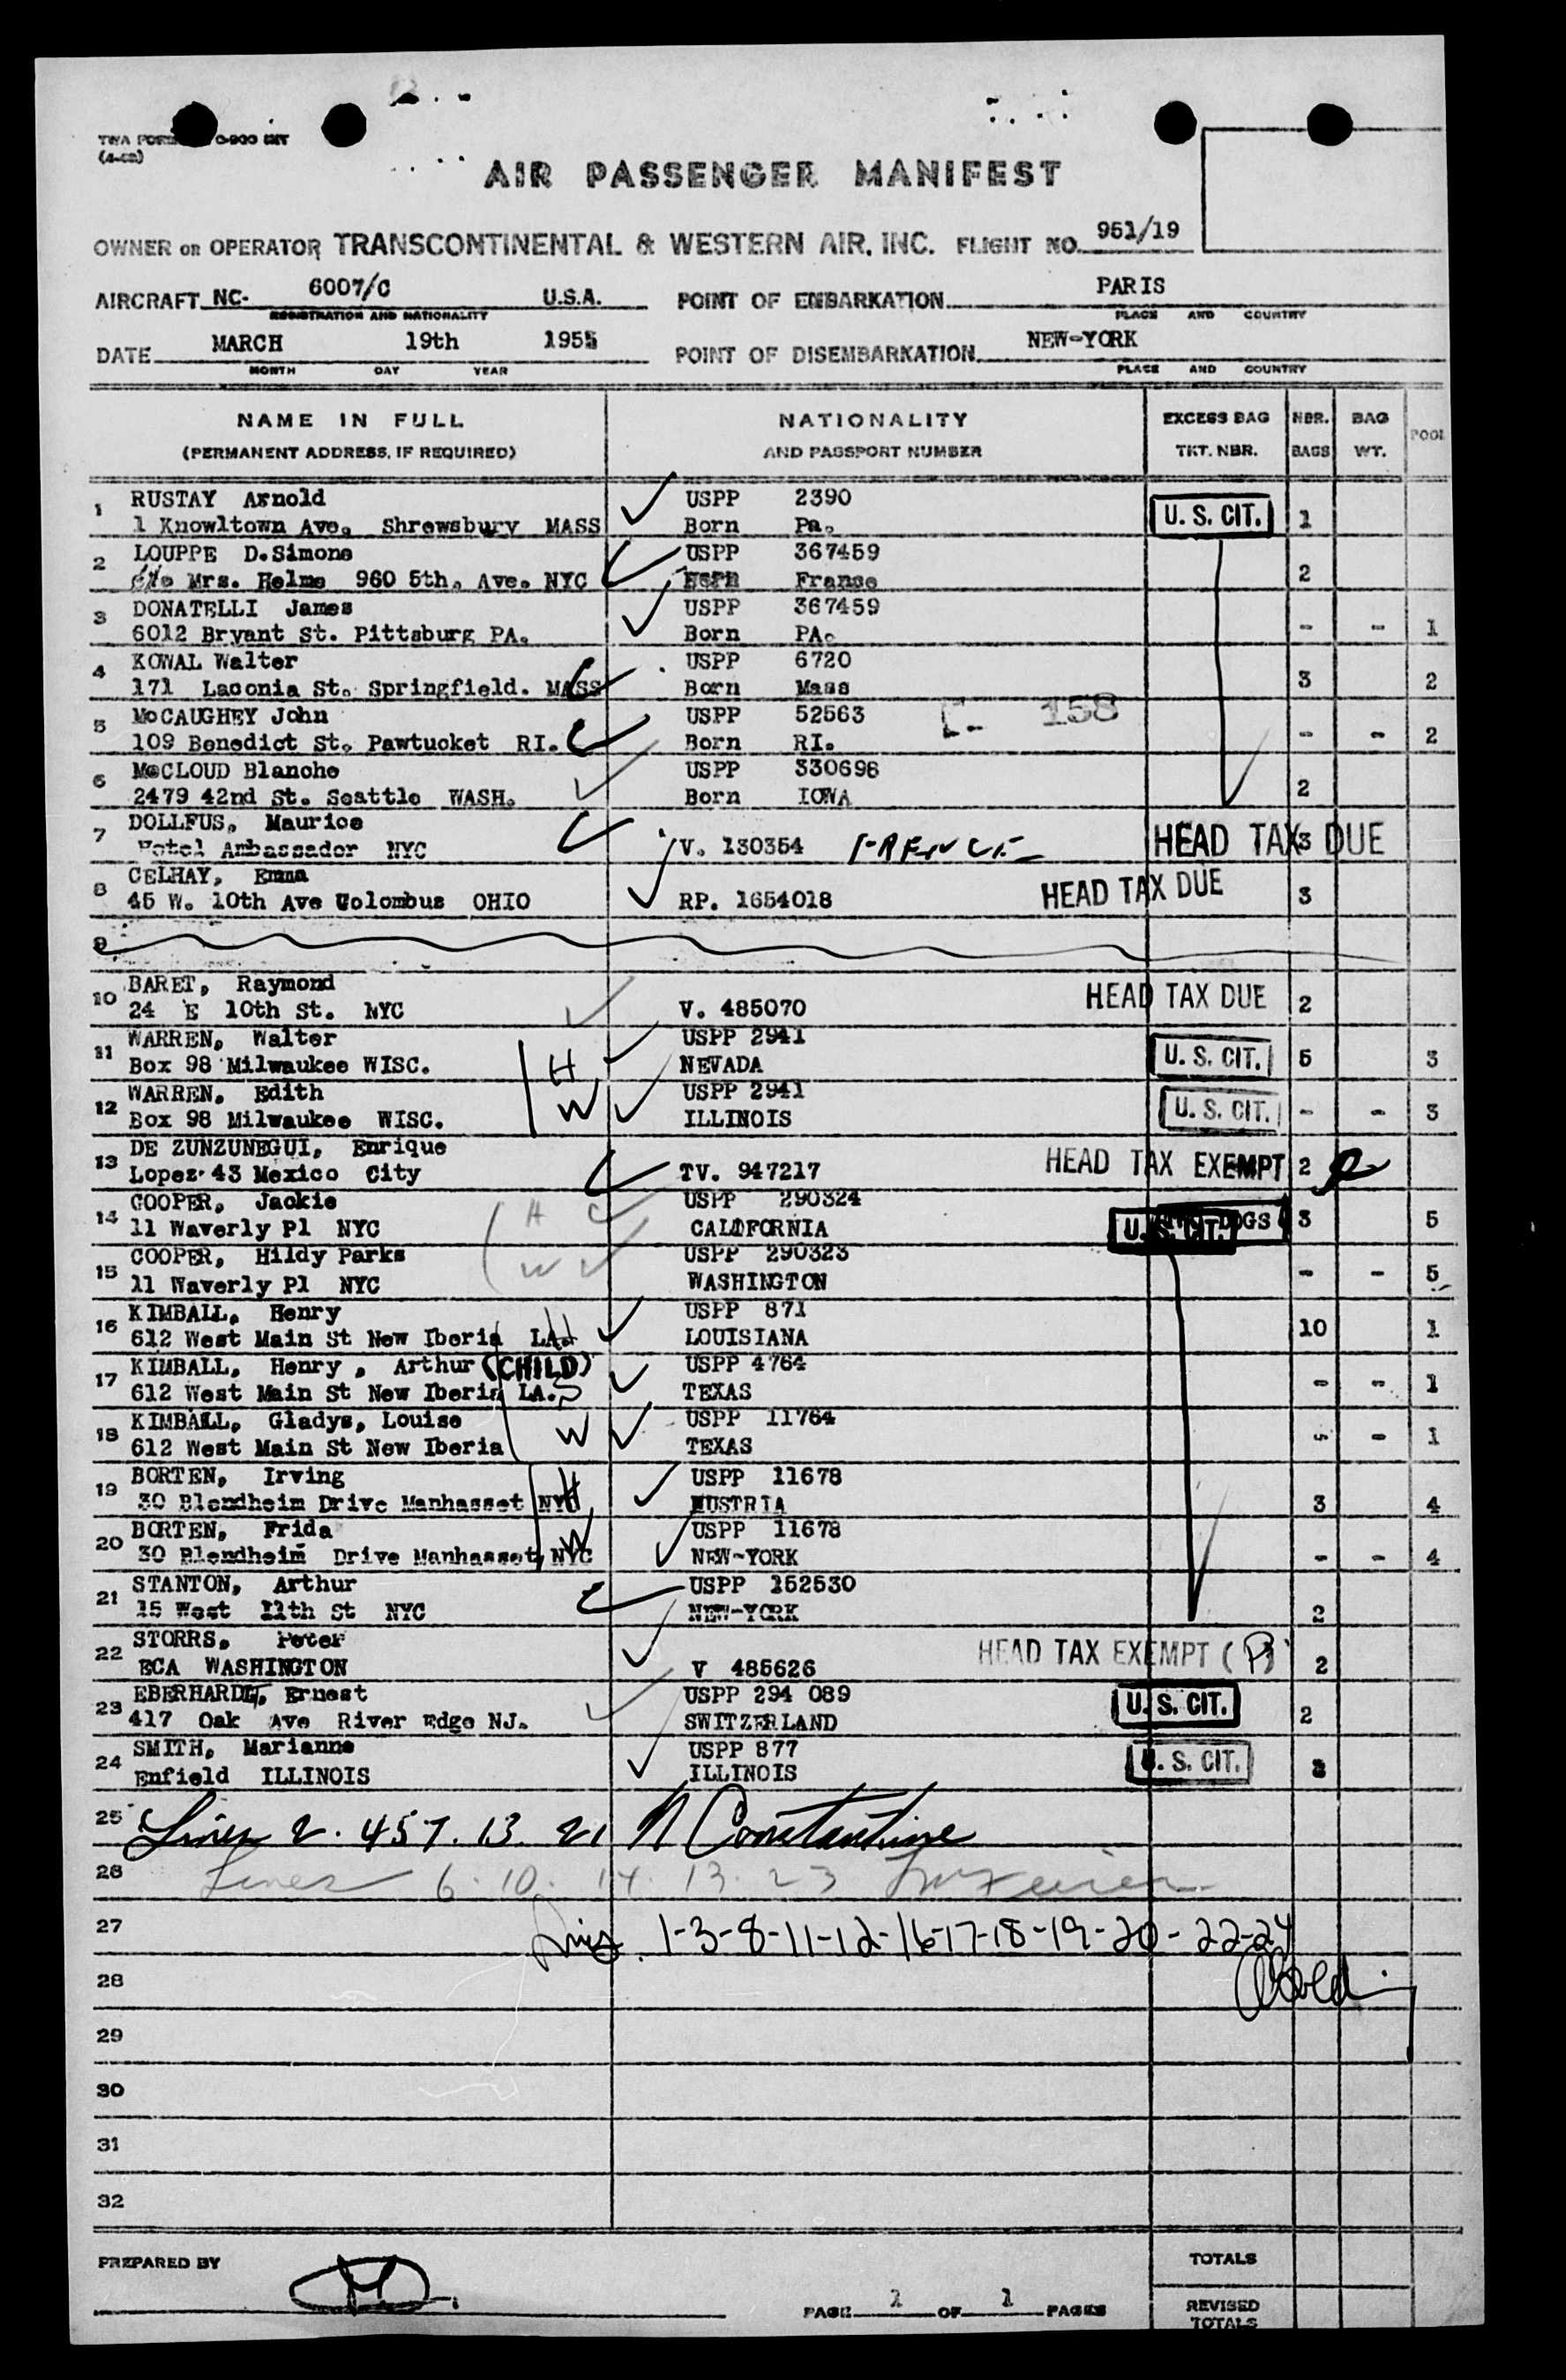 (4-48)
AIR PASSENGER MANIFEST
OWNER OR OPERATOR TRANSCONTINENTAL & WESTERN AIR, INC. FLIGHT NO. 951/19
AIRCRAFT NC- 6007/C U.S.A. POINT OF EMBARKATION PARIS
REGISTRATION AND NATIONALITY PLACE AND COUNTRY
DATE MARCH 19th 1955 POINT OF DISEMBARKATION NEW-YORK
MONTH DAY YEAR PLACE AND COUNTRY
NAME IN FULL NATIONALITY EXCESS BAG NBR. BAG POOL
(PERMANENT ADDRESS, IF REQUIRED) AND PASSPORT NUMBER TKT. NBR. BAGS WT.
1 RUSTAY Arnold USPP 2390 U. S. CIT. 1
1 Knowltown Ave. Shrewsbury MASS Born Pa.
2 LOUPPE D.Simone USPP 367459 2
Mrs. Helme 960 5th. Ave. NYC France
3 DONATELLI James USPP 367459 - - 1
6012 Bryant St. Pittsburg PA. Born PA.
4 KOWAL Walter USPP 6720 3 2
171 Laconia St. Springfield. MASS Born Mass
158
5 McCAUGHEY John USPP 52563 - - 2
109 Benedict St. Pawtucket RI. Born RI.
6 McCLOUD Blanche USPP 330696 2
2479 42nd St. Seattle WASH. Born IOWA
7 DOLLFUS, Maurice HEAD TAX DUE 3
Hotel Ambassador NYC V. 130354 FRANCE
8 CELHAY, Emma HEAD TAX DUE 3
45 W. 10th Ave Colombus OHIO RP. 1654018
9
10 BARET, Raymond HEAD TAX DUE 2
24 E 10th St. NYC V. 485070
11 WARREN, Walter USPP 2941 U. S. CIT. 5 3
Box 98 Milwaukee WISC. H NEVADA
12 WARREN, Edith USPP 2941 U. S. CIT. - - 3
Box 98 Milwaukee WISC. W ILLINOIS
13 DE ZUNZUNEGUI, Enrique HEAD TAX EXEMPT 2
Lopez 43 Mexico City TV. 947217
14 COOPER, Jackie H USPP 290324 U. S. CIT. DOGS 3 5
11 Waverly Pl NYC CALIFORNIA
15 COOPER, Hildy Parks W USPP 290323 - - 5
11 Waverly Pl NYC WASHINGTON
16 KIMBALL, Henry H USPP 871 10 1
612 West Main St New Iberia LA. LOUISIANA
17 KIMBALL, Henry, Arthur (CHILD) USPP 4764 - - 1
612 West Main St New Iberia LA. S TEXAS
18 KIMBALL, Gladys, Louise W USPP 11764 - - 1
612 West Main St New Iberia TEXAS
19 BORTEN, Irving H USPP 11678 3 4
30 Blendheim Drive Manhasset NYC AUSTRIA
20 BORTEN, Frida W USPP 11678 - - 4
30 Blendheim Drive Manhasset, NYC NEW-YORK
21 STANTON, Arthur USPP 152530 2
15 West 11th St NYC NEW-YORK
22 STORRS, Peter HEAD TAX EXEMPT (P) 2
ECA WASHINGTON V 485626
23 EBERHARDT, Ernest USPP 294 089 U. S. CIT. 2
417 Oak Ave River Edge NJ. SWITZERLAND
24 SMITH, Marianne USPP 877 U. S. CIT.
Enfield ILLINOIS ILLINOIS
25 Lines 2. 4 5 7. 13. 21 N Constantine
26 Lines 6. 10. 14. 15. 23
27 Lines 1-3-8-11-12-16-17-18-19-20-22-24
28
29
30
31
32
PREPARED BY TOTALS
PAGE 1 OF 1 PAGES REVISED
TOTALS